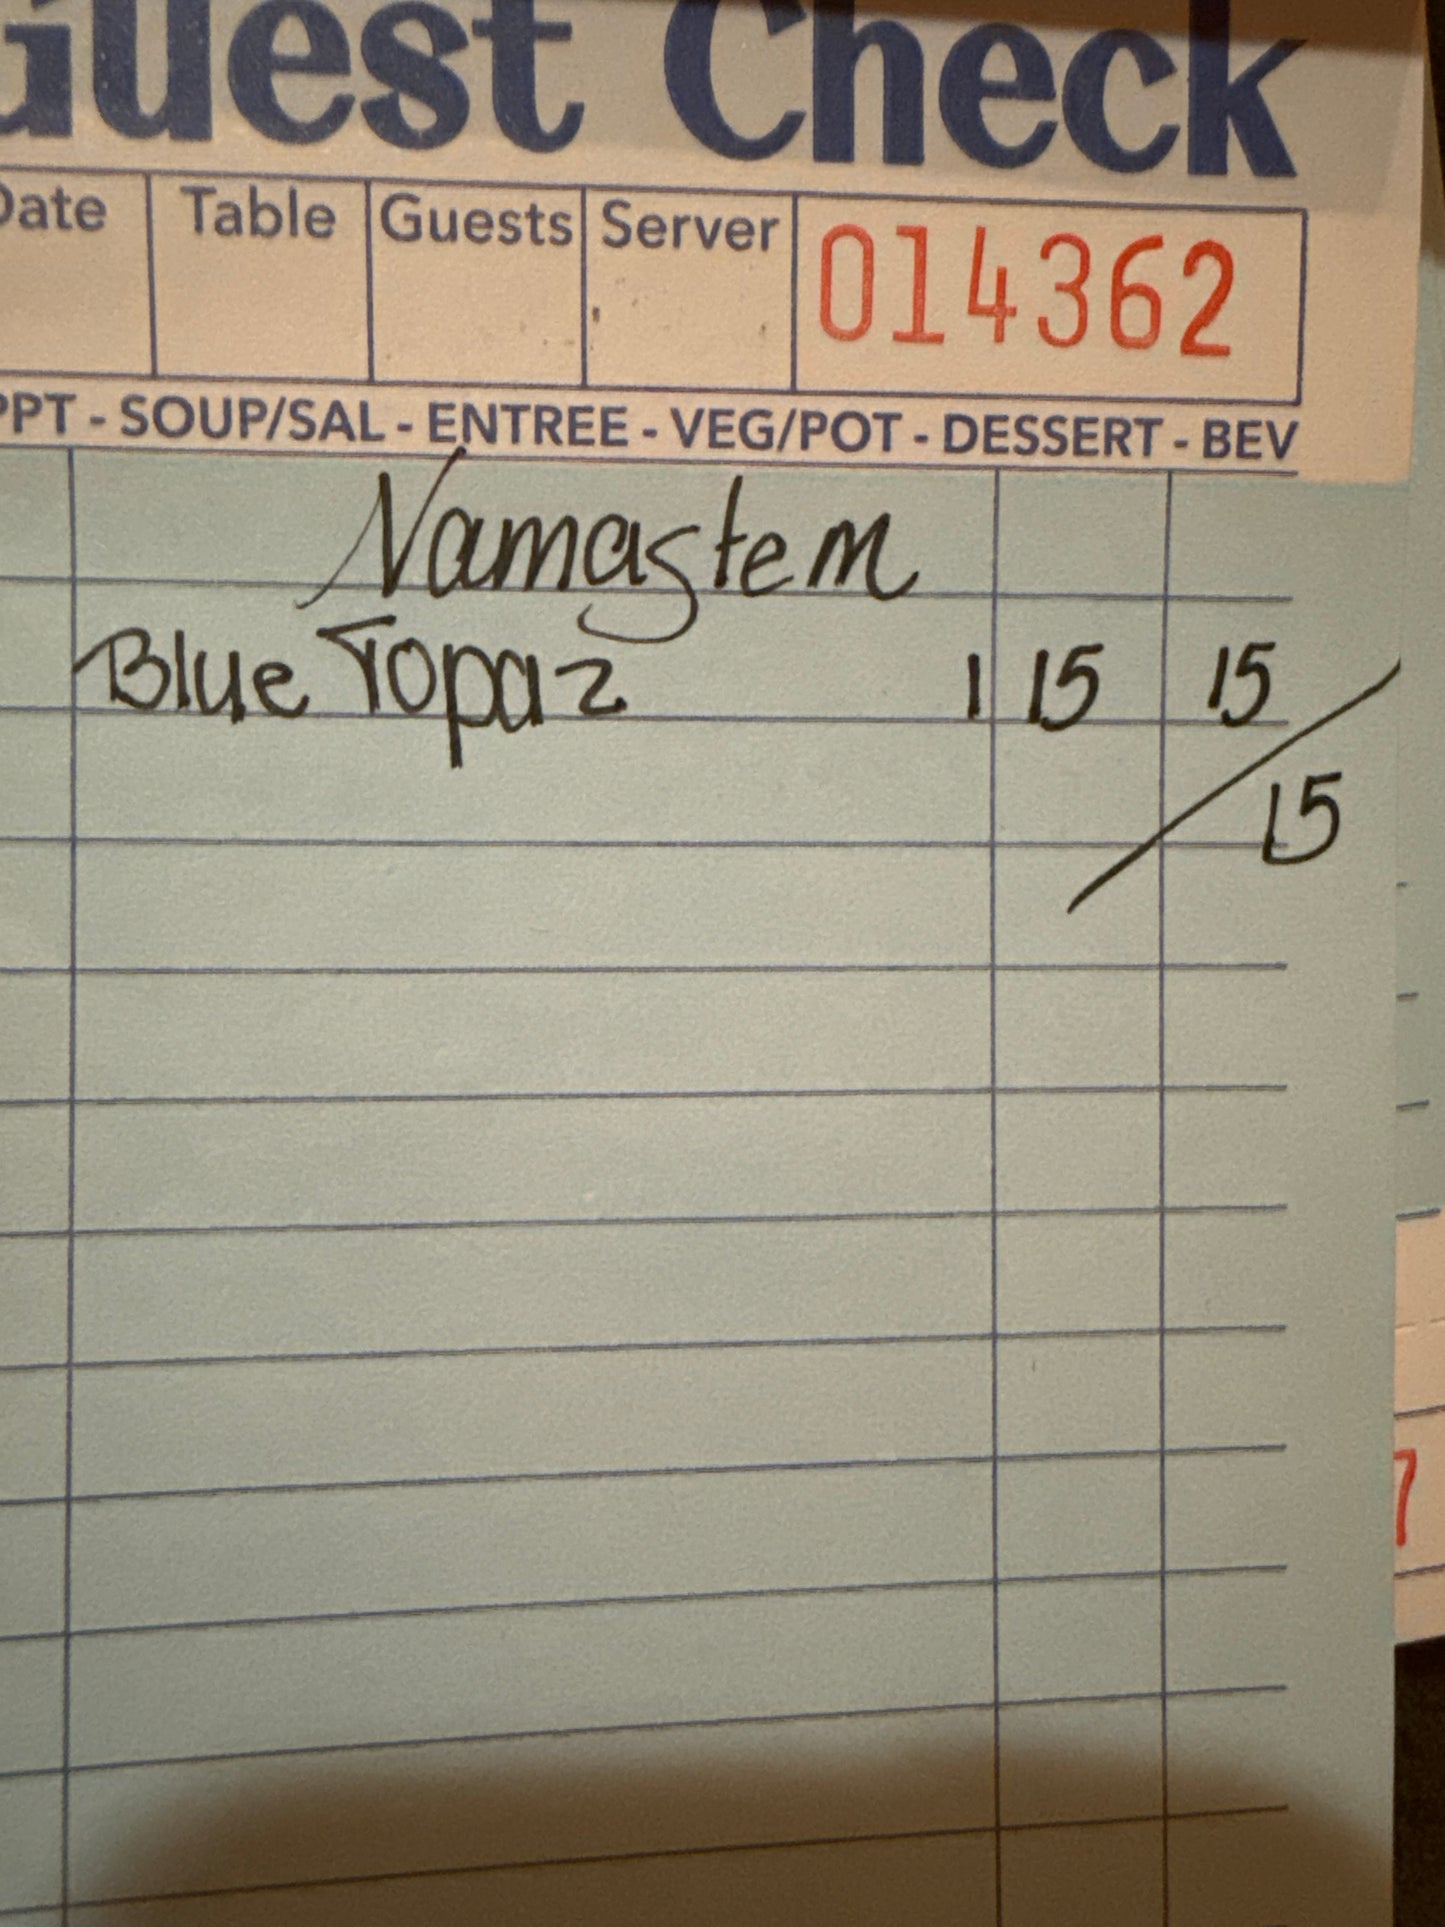 Guest Check
Date Table Guests Server 014362
PPT - SOUP/SAL - ENTREE - VEG/POT - DESSERT - BEV
Namastem
Blue Topaz 1 15 15
15
7